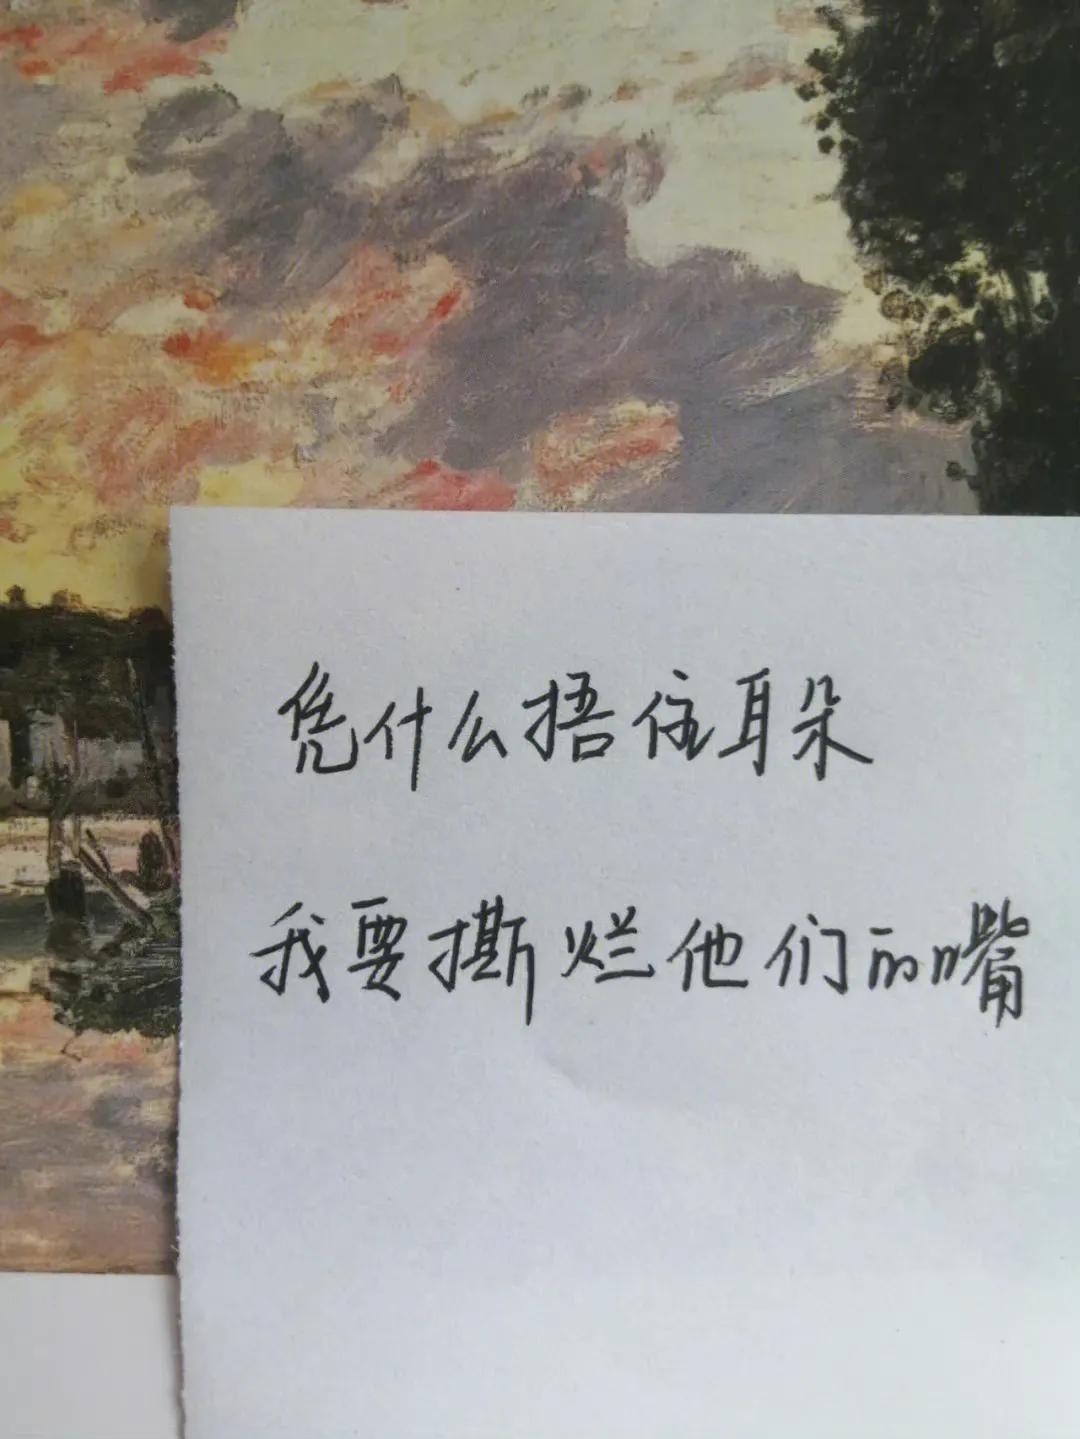 凭什么捂住耳朵
我要撕烂他们的嘴